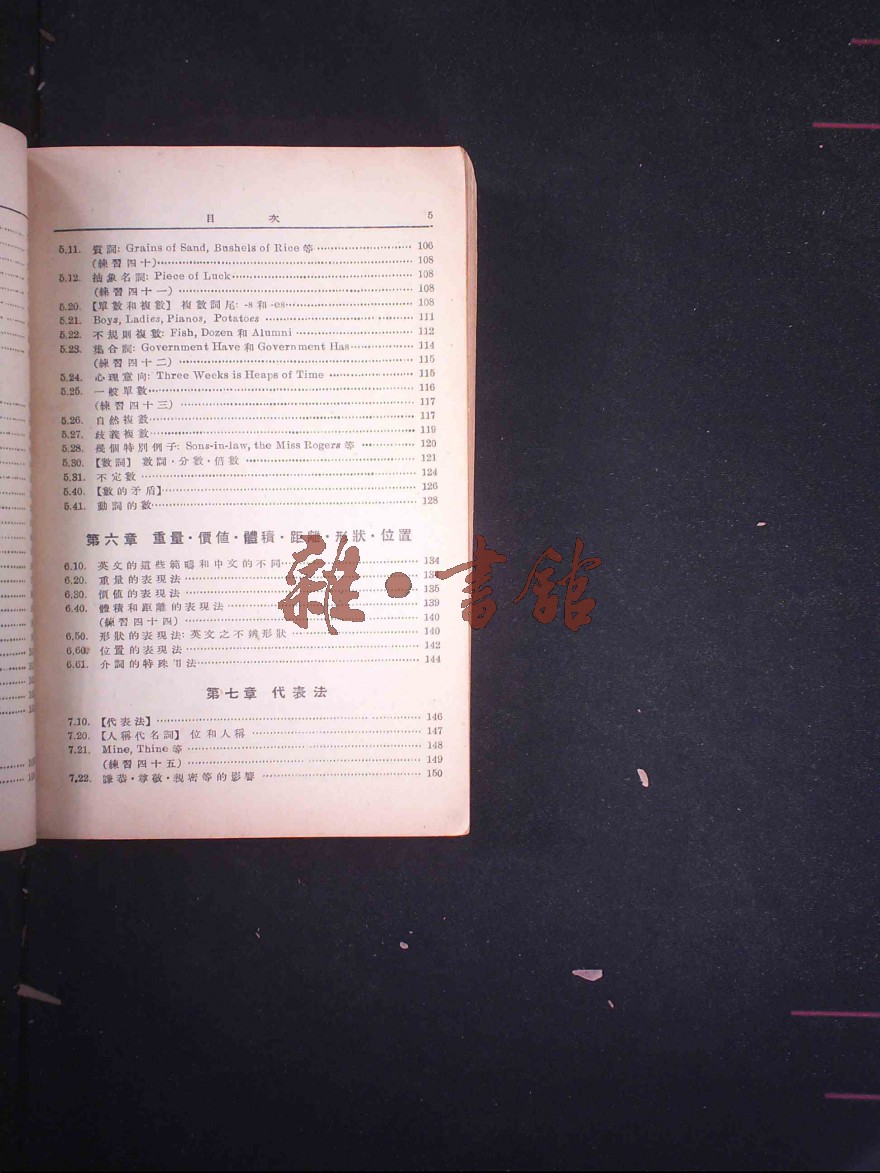 目 次 5
5.11. 質詞: Grains of Sand, Bushels of Rice 等 106
(練習四十) 108
5.12. 抽象名詞: Piece of Luck 108
(練習四十一) 108
5.20. 【單數和複數】 複數詞尾: -s 和 -es 108
5.21. Boys, Ladies, Pianos, Potatoes 111
5.22. 不規則複數: Fish, Dozen 和 Alumni 112
5.23. 集合詞: Government Have 和 Government Has 114
(練習四十二) 115
5.24. 心理意向: Three Weeks is Heaps of Time 115
5.25. 一般單數 116
(練習四十三) 117
5.26. 自然複數 117
5.27. 歧義複數 119
5.28. 幾個特別例子: Sons-in-law, the Miss Rogers 等 120
5.30. 【數詞】 數詞·分數·倍數 121
5.31. 不定數 124
5.40. 【數的矛盾】 126
5.41. 動詞的數 128
第六章 重量·價值·體積·距離·形狀·位置
6.10. 英文的這些範疇和中文的不同 134
6.20. 重量的表現法
6.30. 價值的表現法 135
6.40. 體積和距離的表現法 139
(練習四十四) 140
6.50. 形狀的表現法: 英文之不辨形狀 140
6.60. 位置的表現法 142
6.61. 介詞的特殊用法 144
第七章 代表法
7.10. 【代表法】 146
7.20. 【人稱代名詞】 位和人稱 147
7.21. Mine, Thine 等 148
(練習四十五) 149
7.22. 謙恭·尊敬·親密等的影響 150
雜·書館